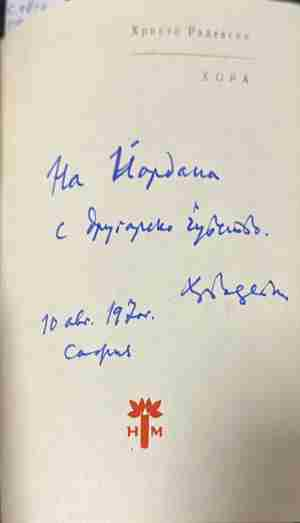 Христо Радевски
ХОРА
На Йордана
с другарско чувство.
10 авг. 1970г.
София
НМ